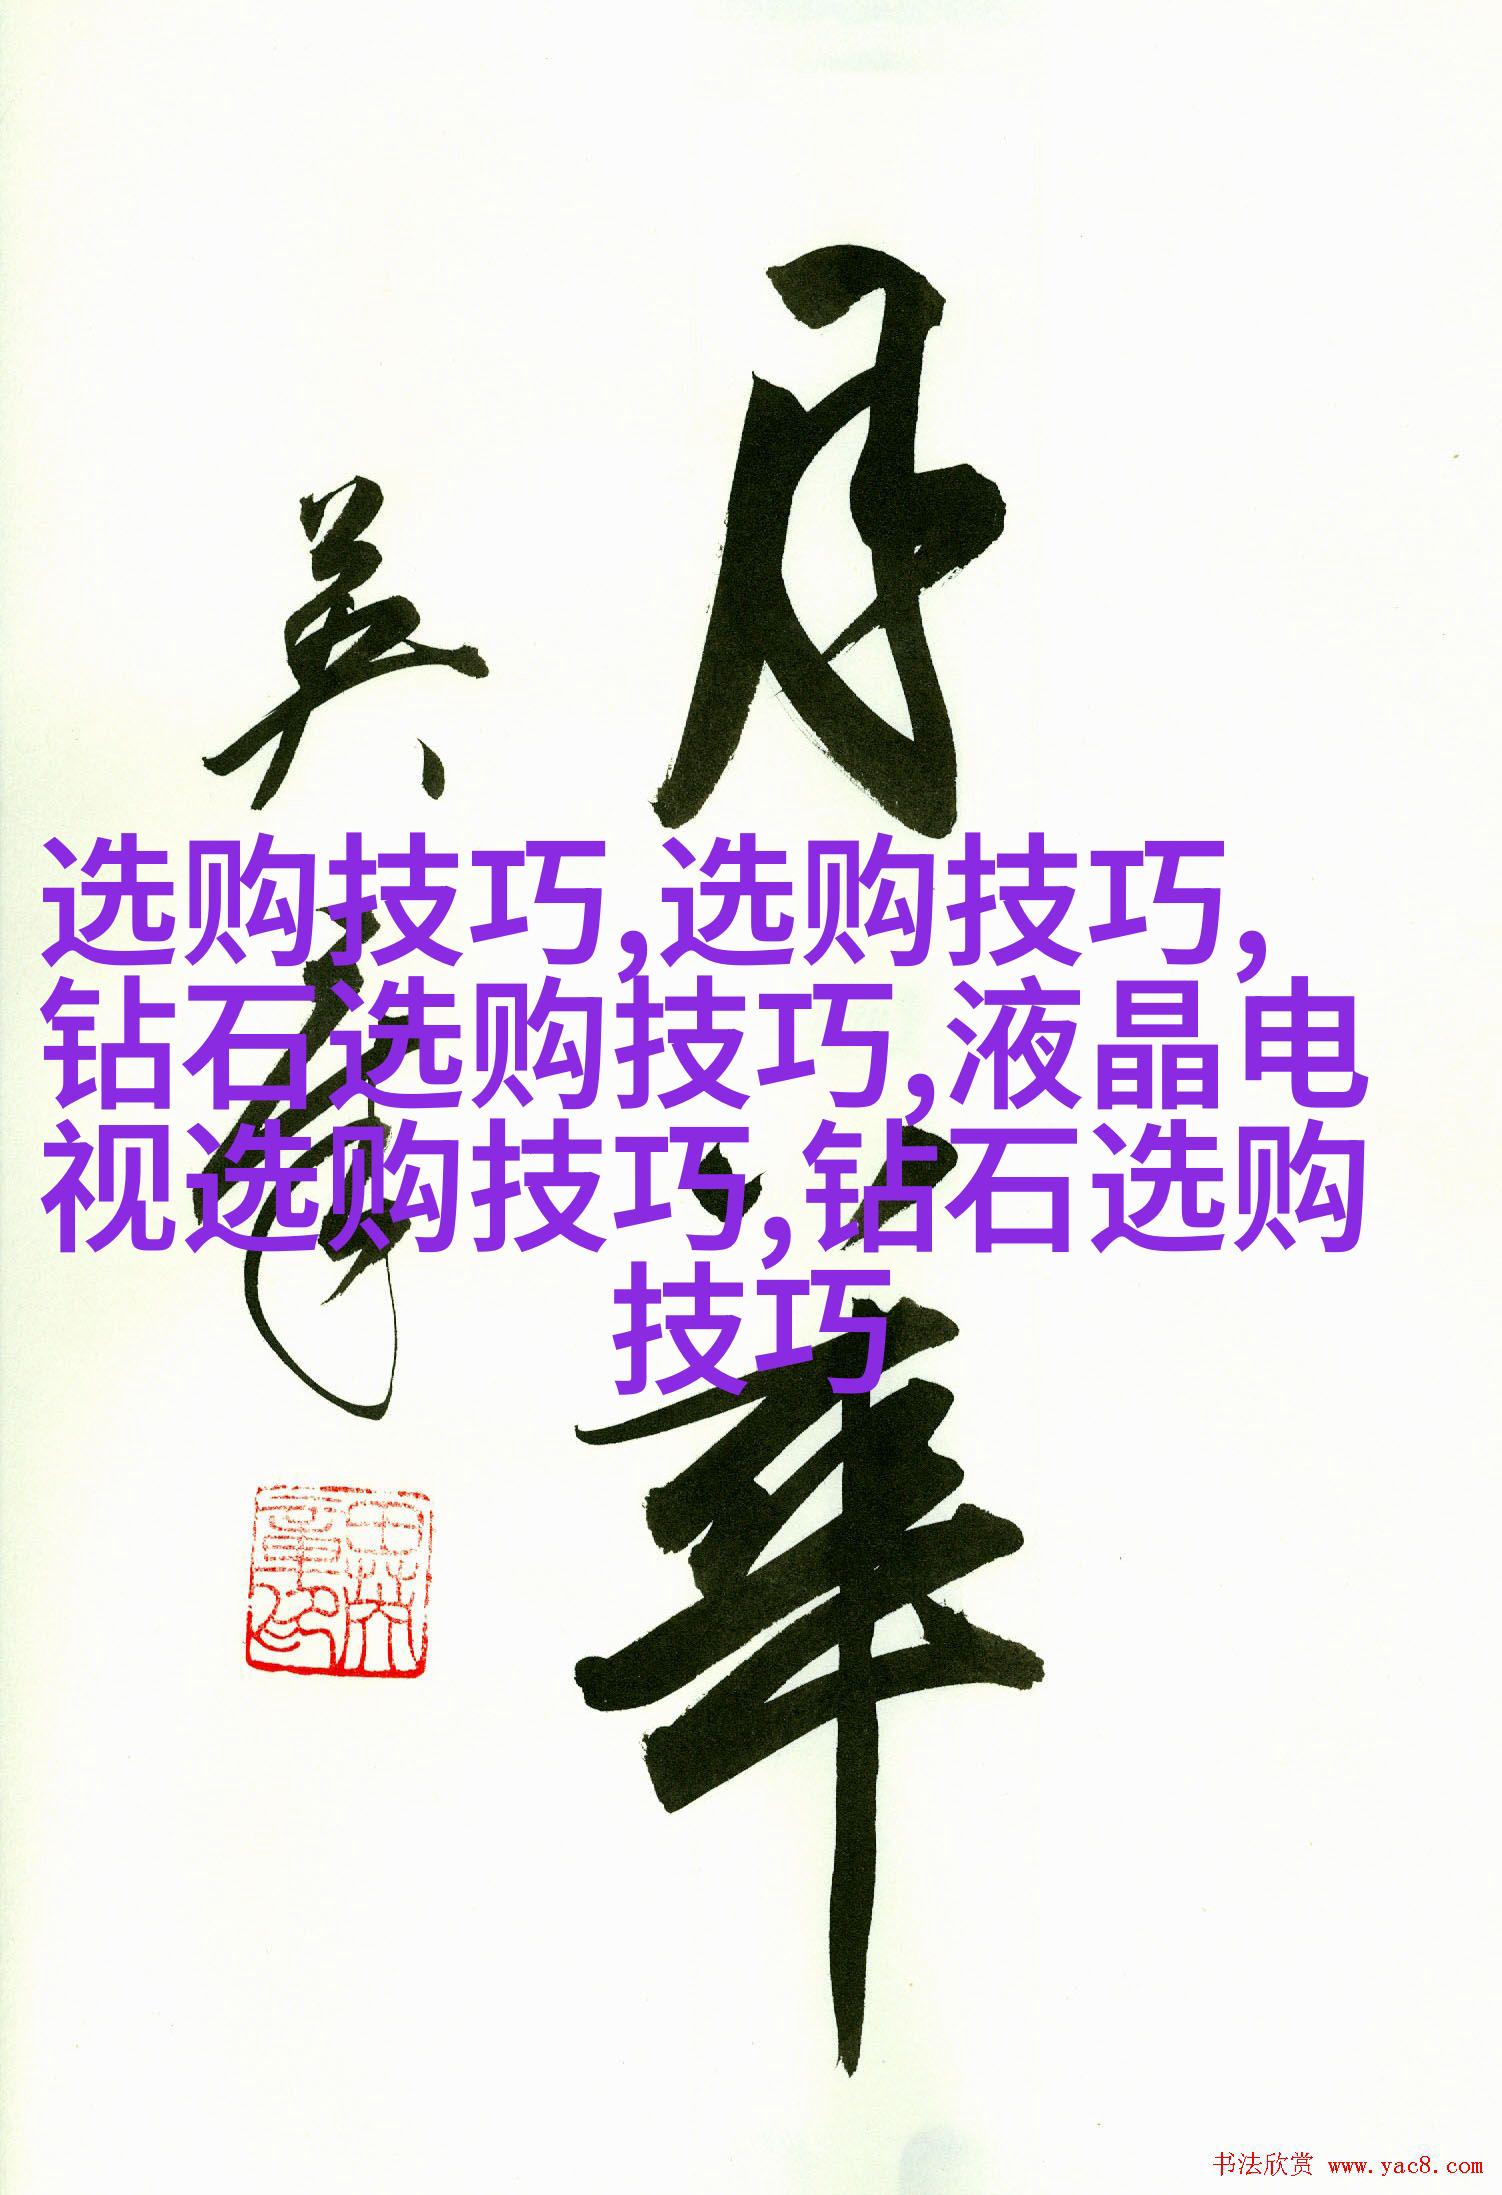 月华
选购技巧,选购技巧,
钻石选购技巧,液晶电
视选购技巧,钻石选购
技巧
书法欣赏 www.yac8.com